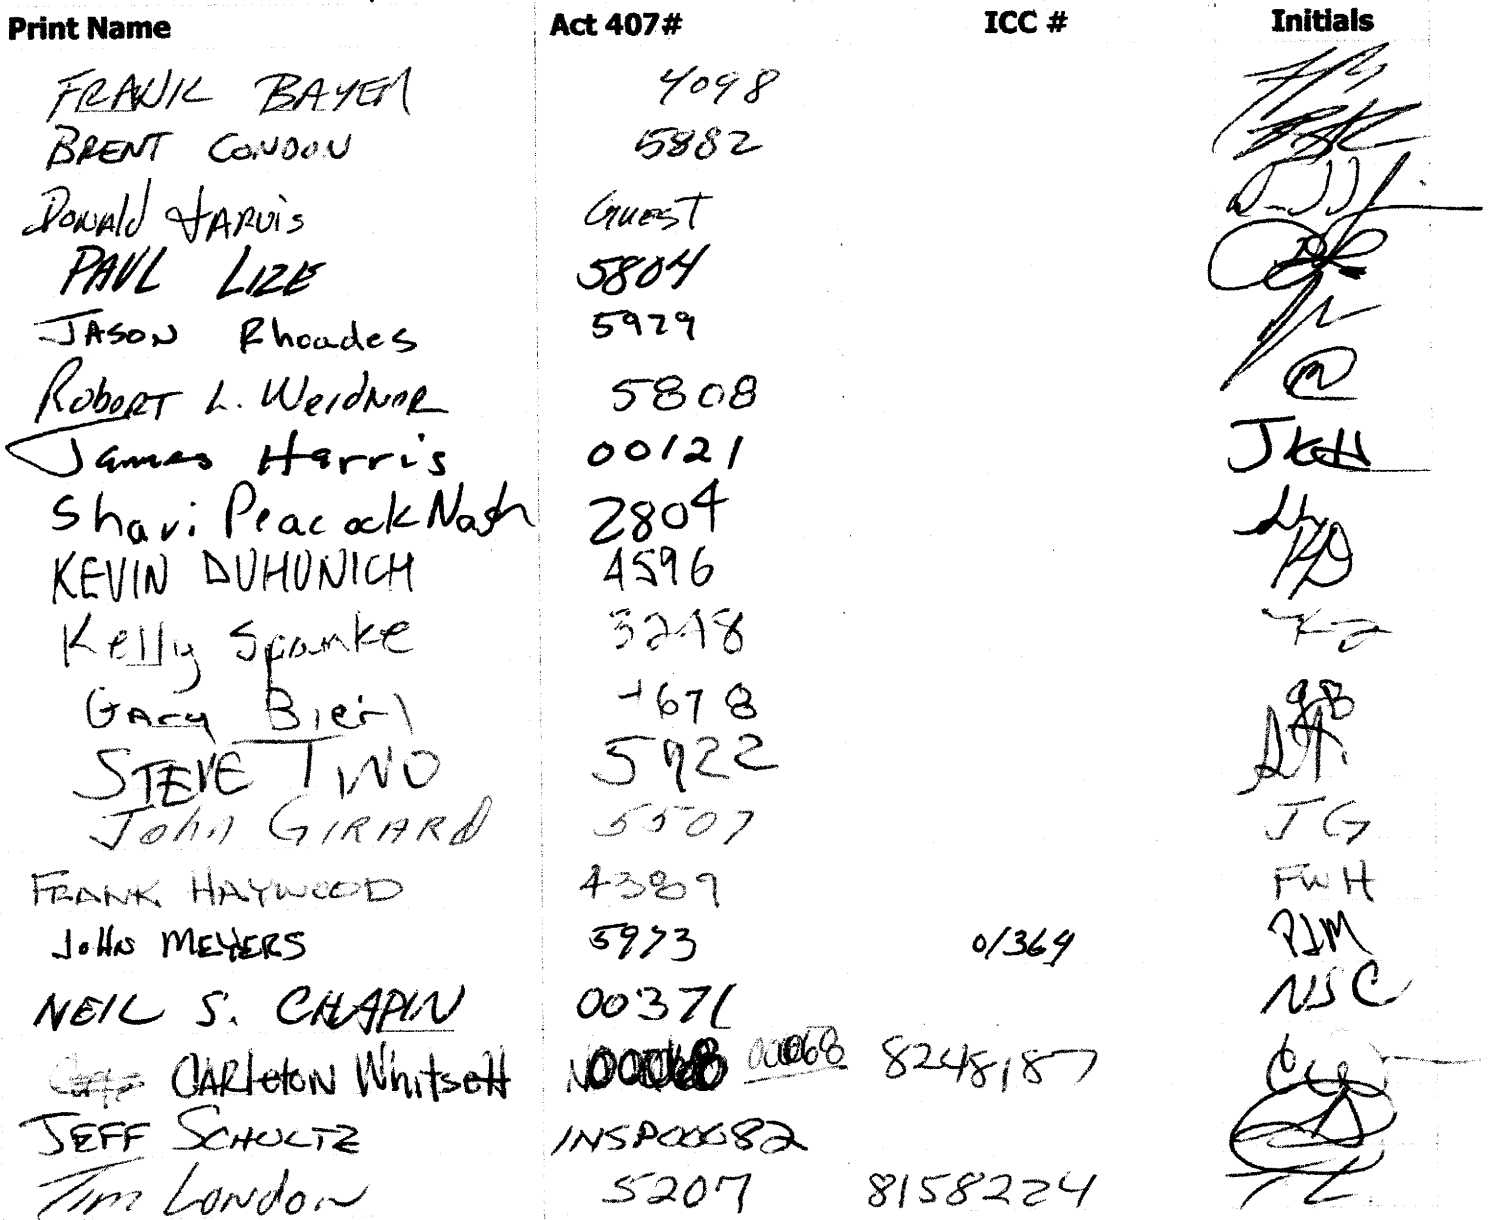 Print Name Act 407# ICC # Initials
FRANK BAYER 4098
BRENT CONDON 5882
DONALD JARVIS GUEST
PAUL LIZE 5804
JASON Rhoades 5929
ROBERT L. WEIDNER 5808
James Harris 00121 JKH
Shari Peacock Nash 2804
KEVIN DUHUNICH 4596 KD
Kelly Spanke 3248
Gary Bierl 4678 GB
STEVE TINO 5922
John GIRARD 5507 JG
FRANK HAYWOOD 4389 FWH
JOHN MEYERS 5973 01364
NEIL S. CHAPIN 00371 NSC
CARleton Whitsett 00068 00068 8248187
JEFF SCHULTZ INSP00082
Tim London 5207 8158224 TL